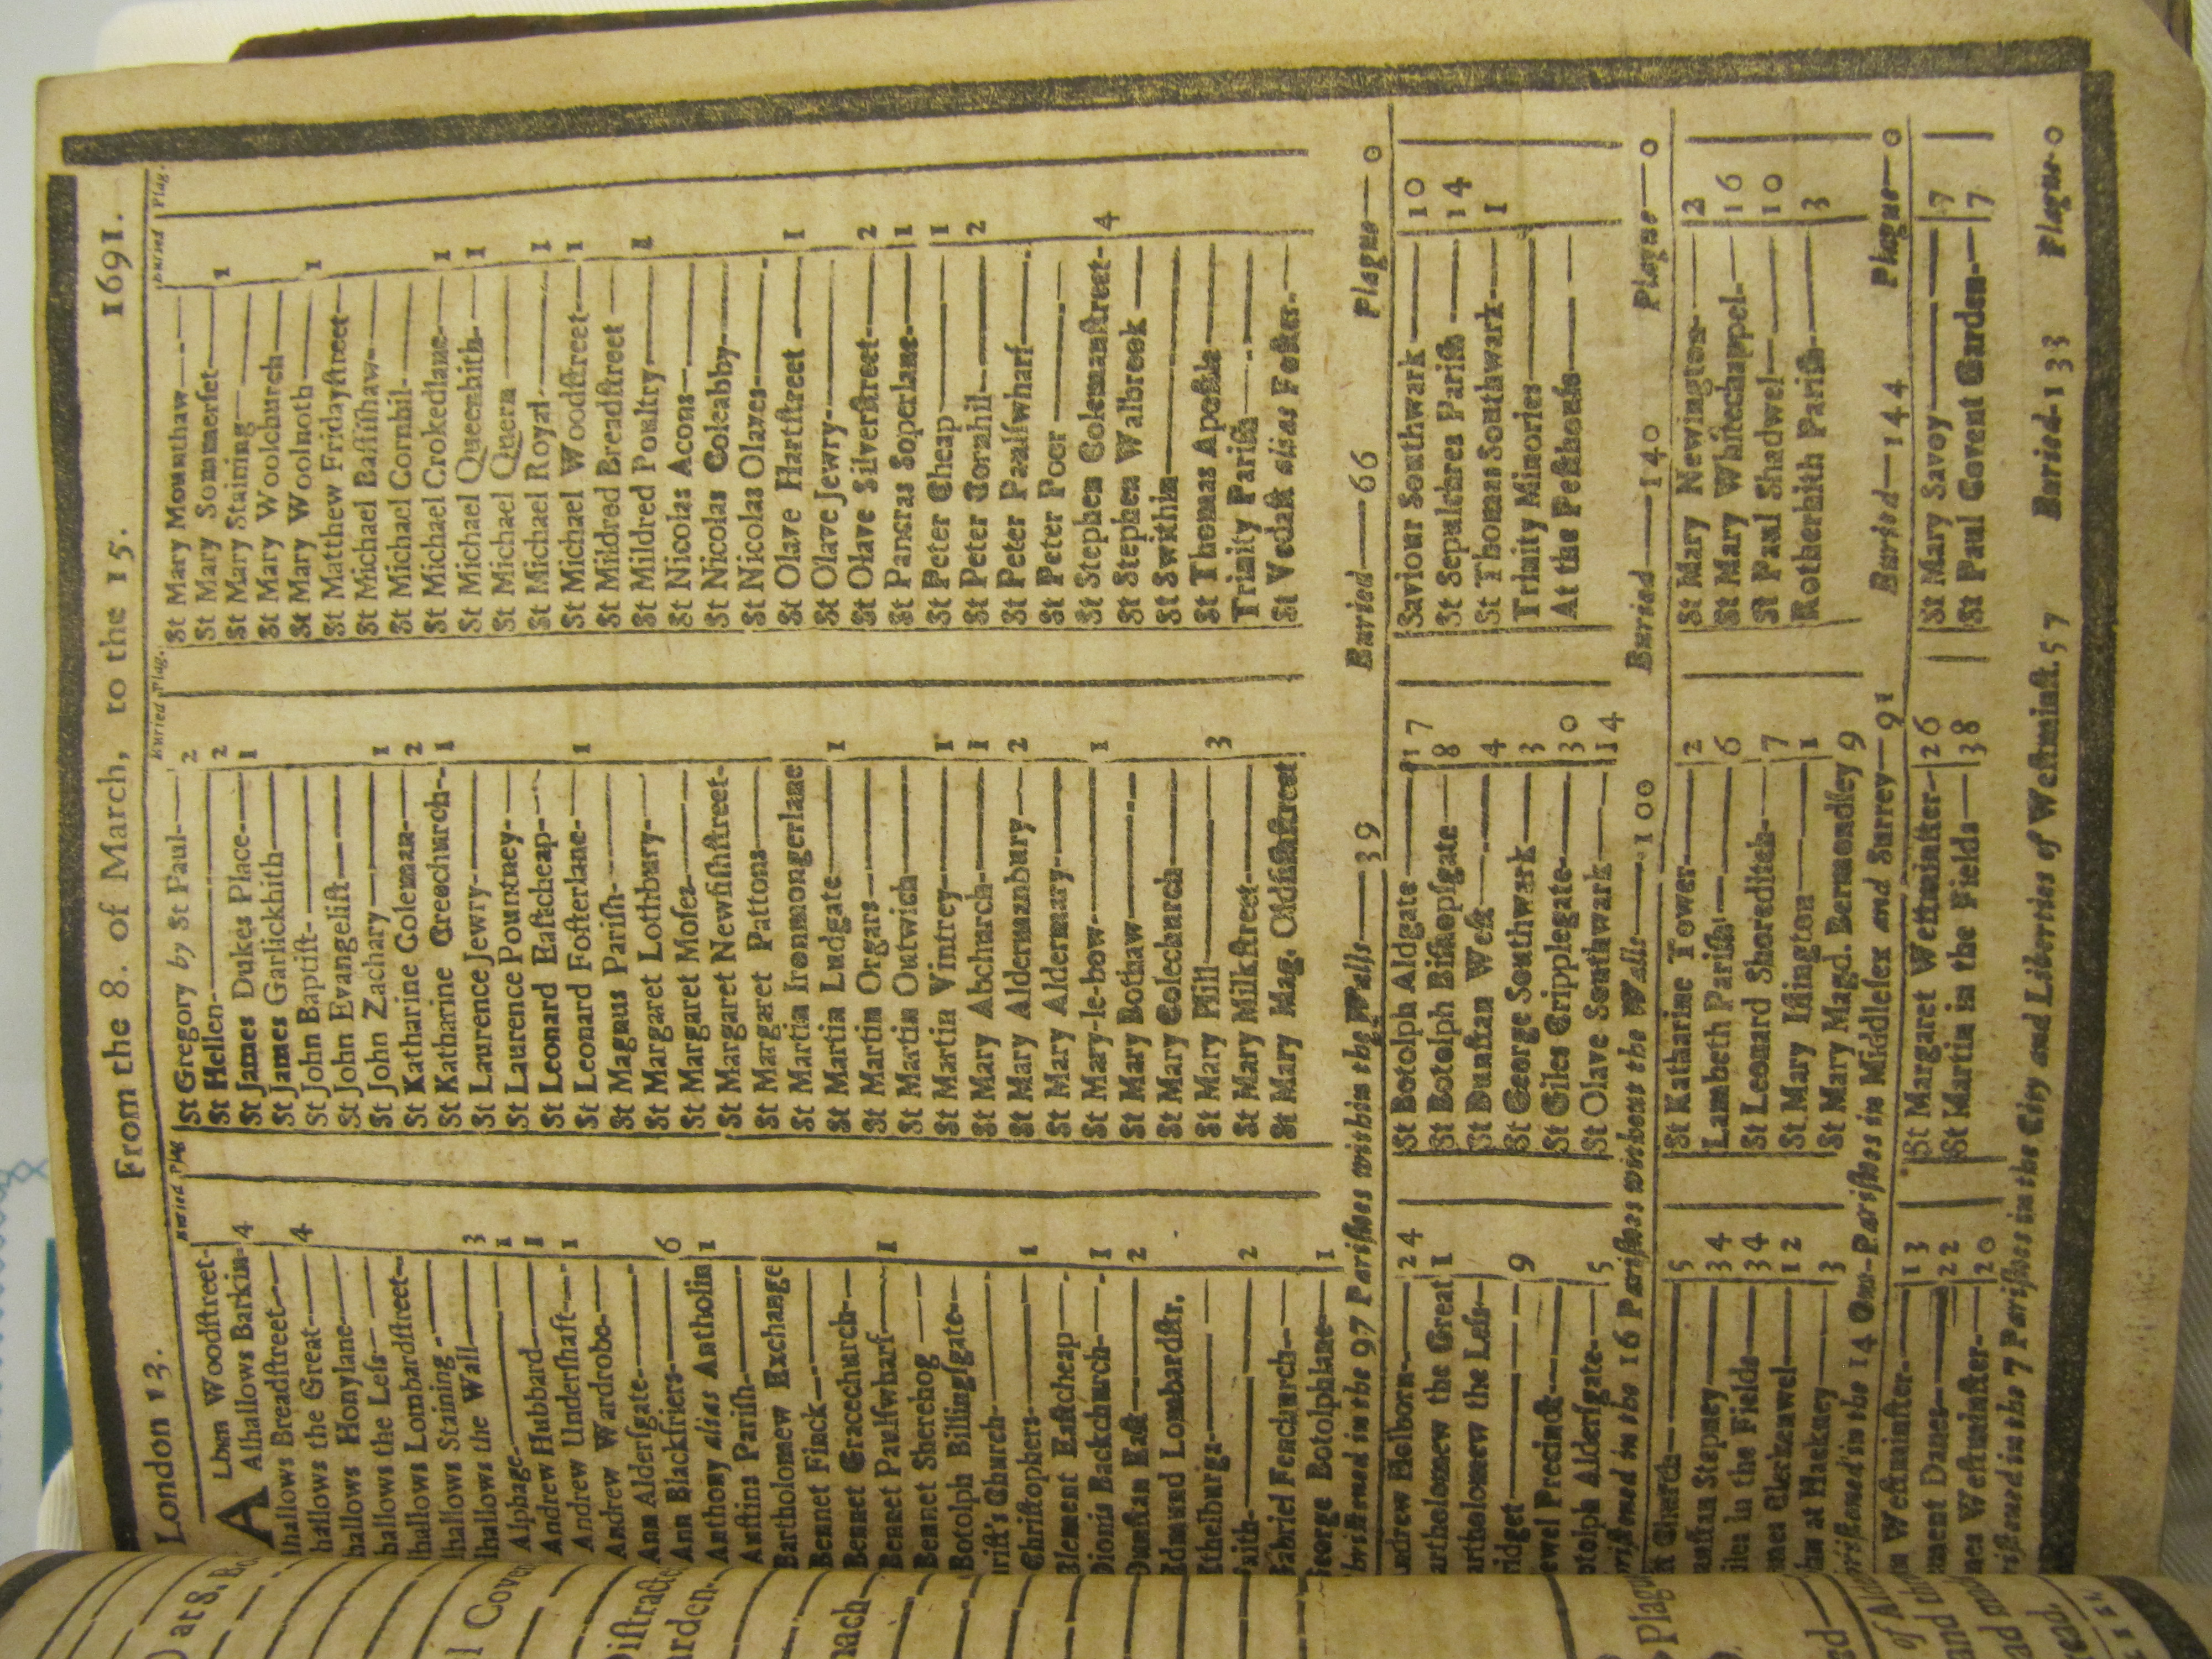 London 13. From the 8. of March, to the 15. 1691.
Buried Plag.
ALban Woodſtreet-
Alhallows Barkin- 4
lhallows Breadſtreet—
hallows the Great— 4
hallows Honylane—
hallows the Leſs—
hallows Lombardſtreet-
hallows Staining—
lhallows the Wall— 3
Alphage— 1
Andrew Hubbard— 1
Andrew Underſhaft— 1
Andrew Wardrobe—
Ann Alderſgate—
Ann Blackfriers— 6
Anthony alias Antholin 1
Auſtins Pariſh—
Bartholomew Exchange
Bennet Finck—
Bennet Gracechurch—
Bennet Paulſwharf— 1
Bennet Sherehog—
Botolph Billingſgate—
riſt's Church—
Chriſtophers— 1
Clement Eaſtcheap—
Dionis Backchurch— 1
Dunſtan Eaſt— 2
Edmund Lombardſtr.
Ethelburga—
aith— 2
Gabriel Fenchurch—
George Botolphlane— 1
Buried Plag.
St Gregory by St Paul— 2
St Hellen— 2
St James Dukes Place— 1
St James Garlickhith—
St John Baptiſt—
St John Evangeliſt—
St John Zachary— 1
St Katharine Coleman— 2
St Katharine Creechurch— 1
St Laurence Jewry—
St Laurence Pountney—
St Leonard Eaſtcheap—
St Leonard Foſterlane— 1
St Magnus Pariſh—
St Margaret Lothbury—
St Margaret Moſes—
St Margaret Newfiſhſtreet-
St Margaret Pattons—
St Martin Ironmongerlane
St Martin Ludgate— 1
St Martin Orgars—
St Martin Outwich—
St Martin Vintrey— 1
St Mary Abchurch— 1
St Mary Aldermanbury— 2
St Mary Aldermary—
St Mary-le-bow— 1
St Mary Bothaw—
St Mary Colechurch—
St Mary Hill— 3
St Mary Milkſtreet—
St Mary Mag. Oldfiſhſtreet
Buried Plag.
St Mary Mounthaw—
St Mary Sommerſet— 1
St Mary Staining—
St Mary Woolchurch—
St Mary Woolnoth— 1
St Matthew Fridayſtreet—
St Michael Baſſiſhaw—
St Michael Cornhil—
St Michael Crokedlane— 1
St Michael Queenhith— 1
St Michael Quern—
St Michael Royal— 1
St Michael Woodſtreet— 1
St Mildred Breadſtreet—
St Mildred Poultry— 1
St Nicolas Acons—
St Nicolas Coleabby—
St Nicolas Olaves—
St Olave Hartſtreet— 1
St Olave Jewry—
St Olave Silverſtreet— 2
St Pancras Soperlane— 1
St Peter Cheap— 1
St Peter Cornhil— 2
St Peter Paulſwharf—
St Peter Poor—
St Stephen Colemanſtreet- 4
St Stephen Walbrook—
St Swithin—
St Thomas Apoſtle—
Trinity Pariſh—
St Vedaſt alias Foſter.—
briſtned in the 97 Pariſhes within the Walls— 39 Buried— 66 Plague— 0
ndrew Holborn— 24
artholomew the Great 1
artholomew the Leſs—
ridget— 9
ewel Precinct—
otolph Alderſgate— 5
St Botolph Aldgate— 17
St Botolph Biſhopſgate— 8
St Dunſtan Weſt— 4
St George Southwark— 3
St Giles Cripplegate— 30
St Olave Southwark— 14
Saviour Southwark— 10
St Sepulchres Pariſh— 14
St Thomas Southwark— 1
Trinity Minories—
At the Peſthouſe—
riſtned in the 16 Pariſhes without the Walls— 100 Buried— 140 Plague— 0
Church— 5
unſtan Stepney— 34
iles in the Fields— 34
mes Clerkenwel— 12
hn at Hackney— 3
St Katharine Tower— 2
Lambeth Pariſh— 6
St Leonard Shoreditch— 7
St. Mary Iſlington— 1
St Mary Magd. Bermondſey 9
St Mary Newington— 2
St Mary Whitechappel— 16
St Paul Shadwel— 10
Rotherhith Pariſh— 3
riſtned in the 14 Out-Pariſhes in Middleſex and Surrey— 91 Buried— 144 Plague— 0
Weſtminſter— 13
ment Danes— 22
mes Weſtminſter— 20
St Margaret Weſtminſter- 26
St Martin in the Fields— 38
St Mary Savoy— 7
St Paul Covent Garden— 7
riſtned in the 7 Pariſhes in the City and Liberties of Weſtminſt. 57 Buried- 133 Plague- 0
at 8.
l Coven
Diſtracte
arden.
nach—
Plague
of Ald
and th
read.